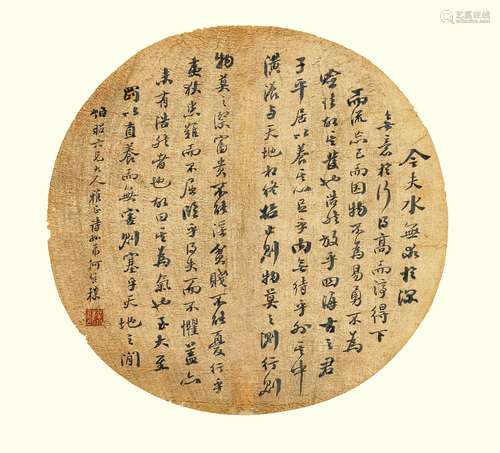 今夫水無求於深
無意於行得高而渟得下
而流忘己而因物不為易勇不為
嶮怯故其發也浩然放乎四海古之君
子平居以養其心足乎内無待乎外其中
潢漾與天地相終始止則物莫之測行則
物莫之禦富貴不能淫貧賤不能憂行乎
夷狄患難而不屈臨乎得失而不懼蓋亦
未有浩然者也故曰其為氣也至大至
剛以直養而無害則塞乎天地之間
六兄大人雅正 弟何